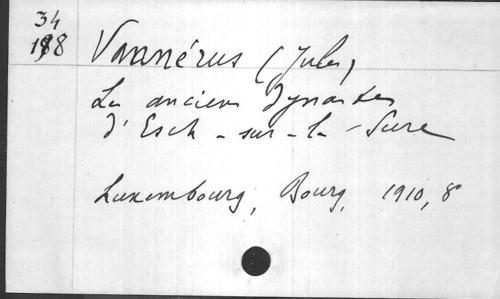 34
188
Vannérus (Jules)
Les anciens Dynastes
d'Esch-sur-la-Sure
Luxembourg, Bourg, 1910, 8°